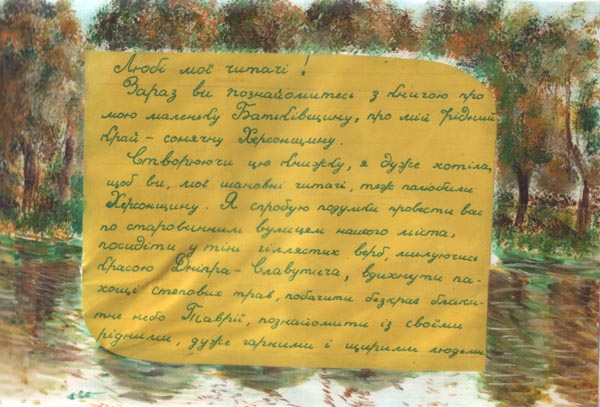 Любі мої читачі!
Зараз ви познайомитесь з книгою про
мою маленьку Батьківщину, про мій рідний
край – сонячну Херсонщину.
Створюючи цю книжку, я дуже хотіла,
щоб ви, мої шановні читачі, теж полюбили
Херсонщину. Я спробую подумки провести вас
по старовинним вулицям нашого міста,
посидіти у тіні гіллястих верб, милуючись
красою Дніпра-Славутича, вдихнути па-
хощі степових трав, побачити безкрає блаки-
тне небо Таврії, познайомити із своїми
рідними, дуже гарними і щирими людьми.